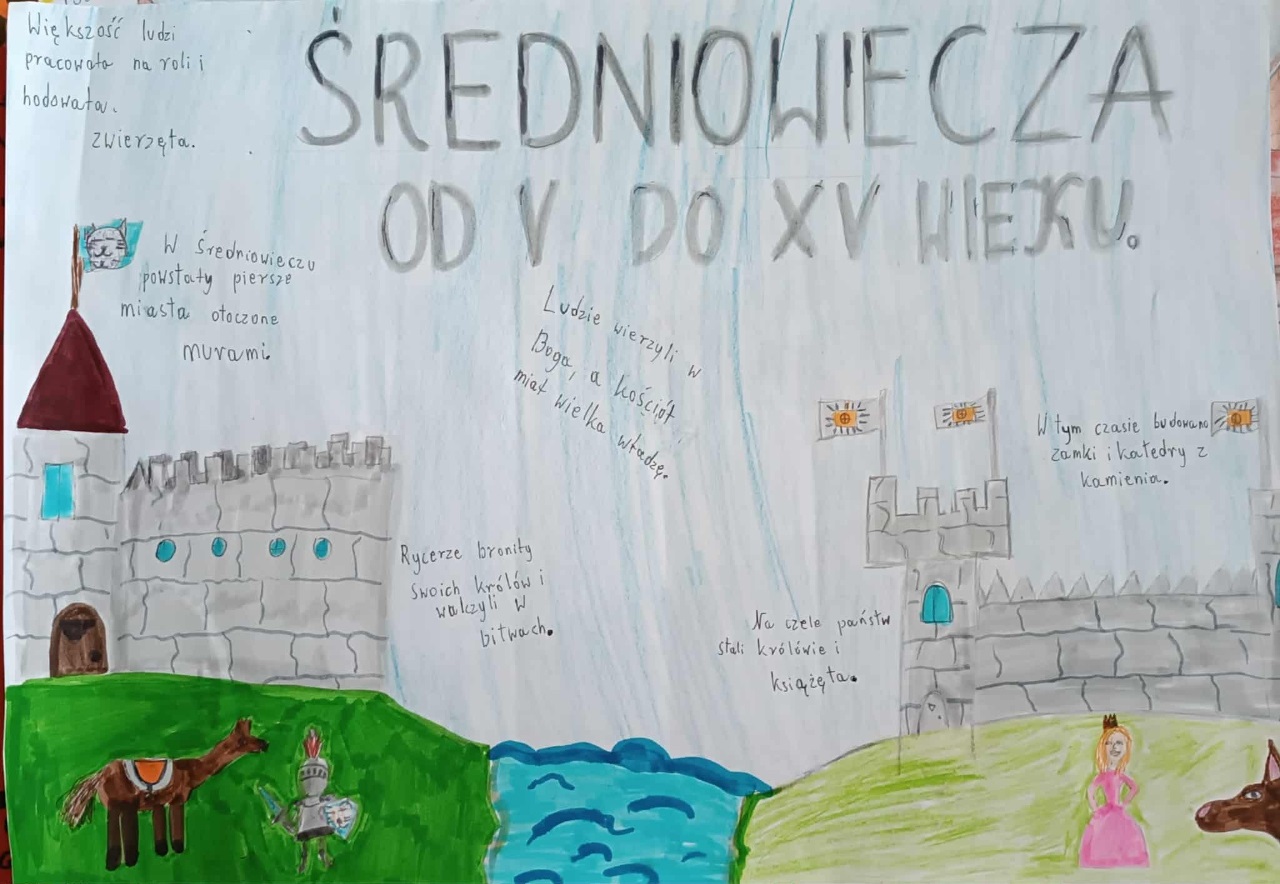 Większość ludzi
pracowała na roli i
hodowała.
zwierzęta.
ŚREDNIOWIECZA
OD V DO XV WIEKU.
W Średniowieczu
powstały piersze
miasta otoczone
murami.
Ludzie wierzyli w
Boga, a kościół
miał wielka władzę.
W tym czasie budowano
zamki i katedry z
kamienia.
Rycerze broniły
swoich królów i
walczyli w
bitwach.
Na czele państw
stali królowie i
książęta.